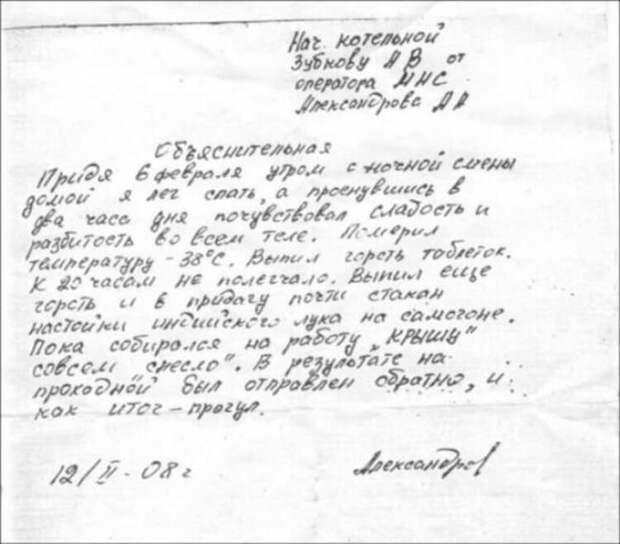 Нач. котельной
Зубкову А В от
оператора ННС
Александрова А А
Объяснительная
Придя 6 февраля утром с ночной смены
домой я лег спать, а проснувшись в
два часа дня почувствовал слабость и
разбитость во всем теле. Померил
температуру - 38°С. Выпил горсть таблеток.
К 20 часам не полегчало. Выпил еще
горсть и в придачу почти стакан
настойки индийского лука на самогоне.
Пока собирался на работу „крышу
совсем снесло". В результате на
проходной был отправлен обратно, и
как итог - прогул.
12/II - 08 г
Александров